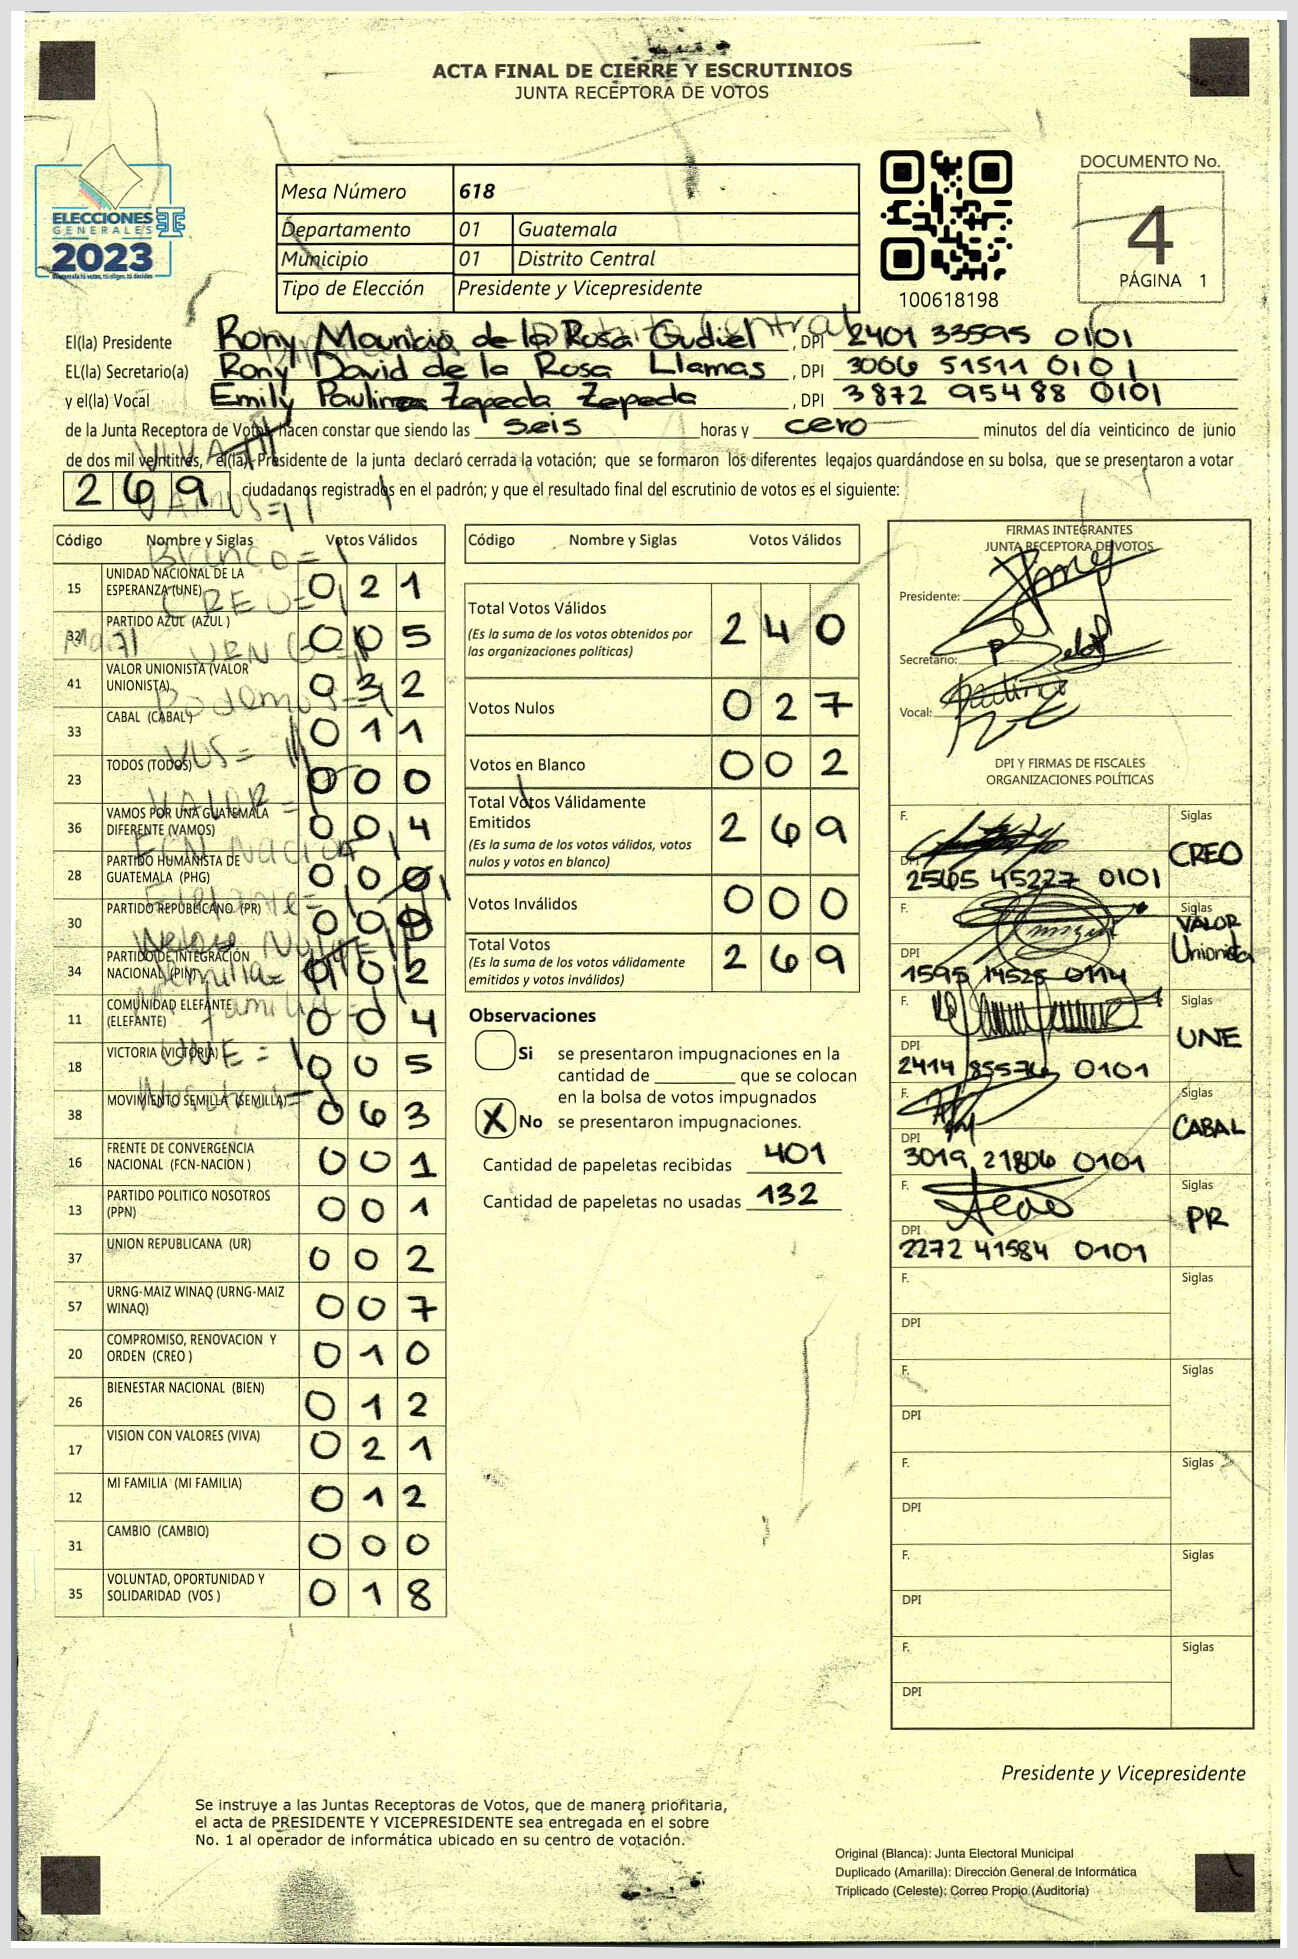 ACTA FINAL DE CIERRE Y ESCRUTINIOS
JUNTA RECEPTORA DE VOTOS
ELECCIONES
GENERALES
2023
Guatemala tú votas, tú eliges, tú decides
Mesa Número 618
Departamento 01 Guatemala
Municipio 01 Distrito Central
Tipo de Elección Presidente y Vicepresidente
100618198
DOCUMENTO No.
4
PÁGINA 1
El(la) Presidente Rony Mauricio de la Rosa Gudiel , DPI 2401 33595 0101
EL(la) Secretario(a) Rony David de la Rosa Llamas , DPI 3006 51511 0101
y el(la) Vocal Emily Paulina Zepeda Zepeda , DPI 3872 95488 0101
de la Junta Receptora de Votos, hacen constar que siendo las seis horas y cero minutos del día veinticinco de junio
de dos mil veintitrés, el(la) Presidente de la junta declaró cerrada la votación; que se formaron los diferentes legajos guardándose en su bolsa, que se presentaron a votar
269 ciudadanos registrados en el padrón; y que el resultado final del escrutinio de votos es el siguiente:
Código Nombre y Siglas Votos Válidos
15 UNIDAD NACIONAL DE LA ESPERANZA (UNE) 021
32 PARTIDO AZUL (AZUL ) 005
41 VALOR UNIONISTA (VALOR UNIONISTA) 032
33 CABAL (CABAL ) 011
23 TODOS (TODOS) 000
36 VAMOS POR UNA GUATEMALA DIFERENTE (VAMOS) 004
28 PARTIDO HUMANISTA DE GUATEMALA (PHG) 000
30 PARTIDO REPUBLICANO (PR) 000
34 PARTIDO DE INTEGRACIÓN NACIONAL (PIN) 002
11 COMUNIDAD ELEFANTE (ELEFANTE) 004
18 VICTORIA (VICTORIA) 005
38 MOVIMIENTO SEMILLA (SEMILLA) 063
16 FRENTE DE CONVERGENCIA NACIONAL (FCN-NACION ) 001
13 PARTIDO POLITICO NOSOTROS (PPN) 001
37 UNION REPUBLICANA (UR) 002
57 URNG-MAIZ WINAQ (URNG-MAIZ WINAQ) 007
20 COMPROMISO, RENOVACION Y ORDEN (CREO ) 010
26 BIENESTAR NACIONAL (BIEN) 012
17 VISION CON VALORES (VIVA) 021
12 MI FAMILIA (MI FAMILIA) 012
31 CAMBIO (CAMBIO) 000
35 VOLUNTAD, OPORTUNIDAD Y SOLIDARIDAD (VOS ) 018
Código Nombre y Siglas Votos Válidos
Total Votos Válidos 240
(Es la suma de los votos obtenidos por
las organizaciones políticas)
Votos Nulos 027
Votos en Blanco 002
Total Votos Válidamente
Emitidos 269
(Es la suma de los votos válidos, votos
nulos y votos en blanco)
Votos Inválidos 000
Total Votos 269
(Es la suma de los votos válidamente
emitidos y votos inválidos)
Observaciones
Si se presentaron impugnaciones en la
cantidad de ________ que se colocan
en la bolsa de votos impugnados
X No se presentaron impugnaciones.
Cantidad de papeletas recibidas 401
Cantidad de papeletas no usadas 132
FIRMAS INTEGRANTES
JUNTA RECEPTORA DE VOTOS
Presidente:
Secretario:
Vocal:
DPI Y FIRMAS DE FISCALES
ORGANIZACIONES POLÍTICAS
F. Siglas CREO
DPI 2565 45227 0101
F. Siglas VALOR Unionista
DPI 1595 14525 0114
F. Siglas UNE
DPI 2414 85576 0101
F. Siglas CABAL
DPI 3019 21806 0101
F. Siglas PR
DPI 2272 41584 0101
F. Siglas
DPI
F. Siglas
DPI
F. Siglas
DPI
F. Siglas
DPI
F. Siglas
DPI
Presidente y Vicepresidente
Se instruye a las Juntas Receptoras de Votos, que de manera prioritaria,
el acta de PRESIDENTE Y VICEPRESIDENTE sea entregada en el sobre
No. 1 al operador de informática ubicado en su centro de votación.
Original (Blanca): Junta Electoral Municipal
Duplicado (Amarilla): Dirección General de Informática
Triplicado (Celeste): Correo Propio (Auditoría)